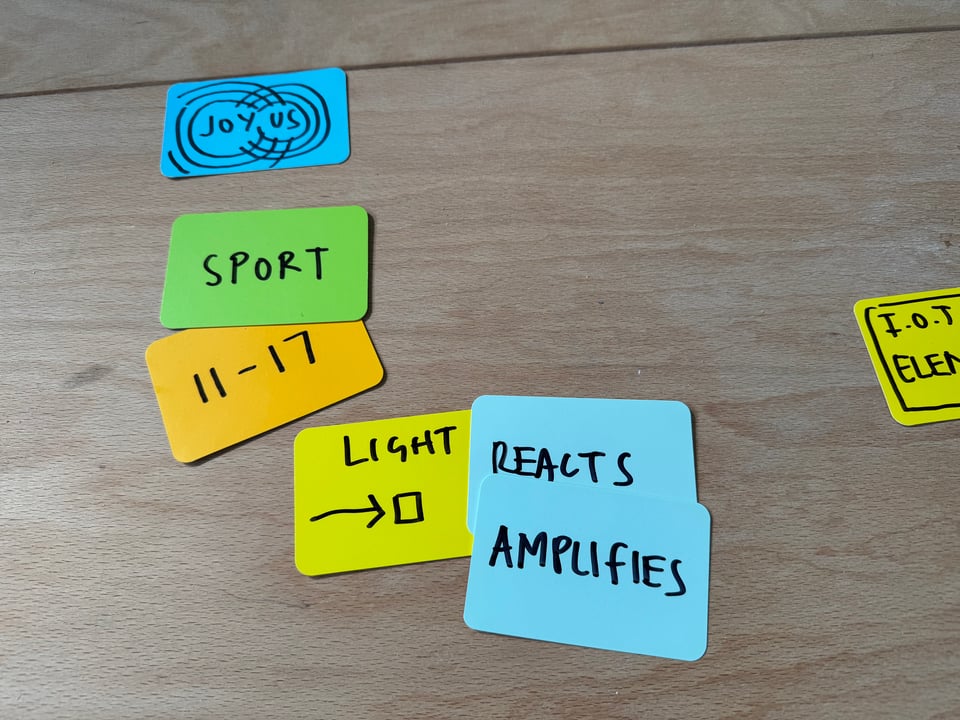 JOY US
SPORT
11-17
LIGHT
REACTS
AMPLIFIES
I.O.T